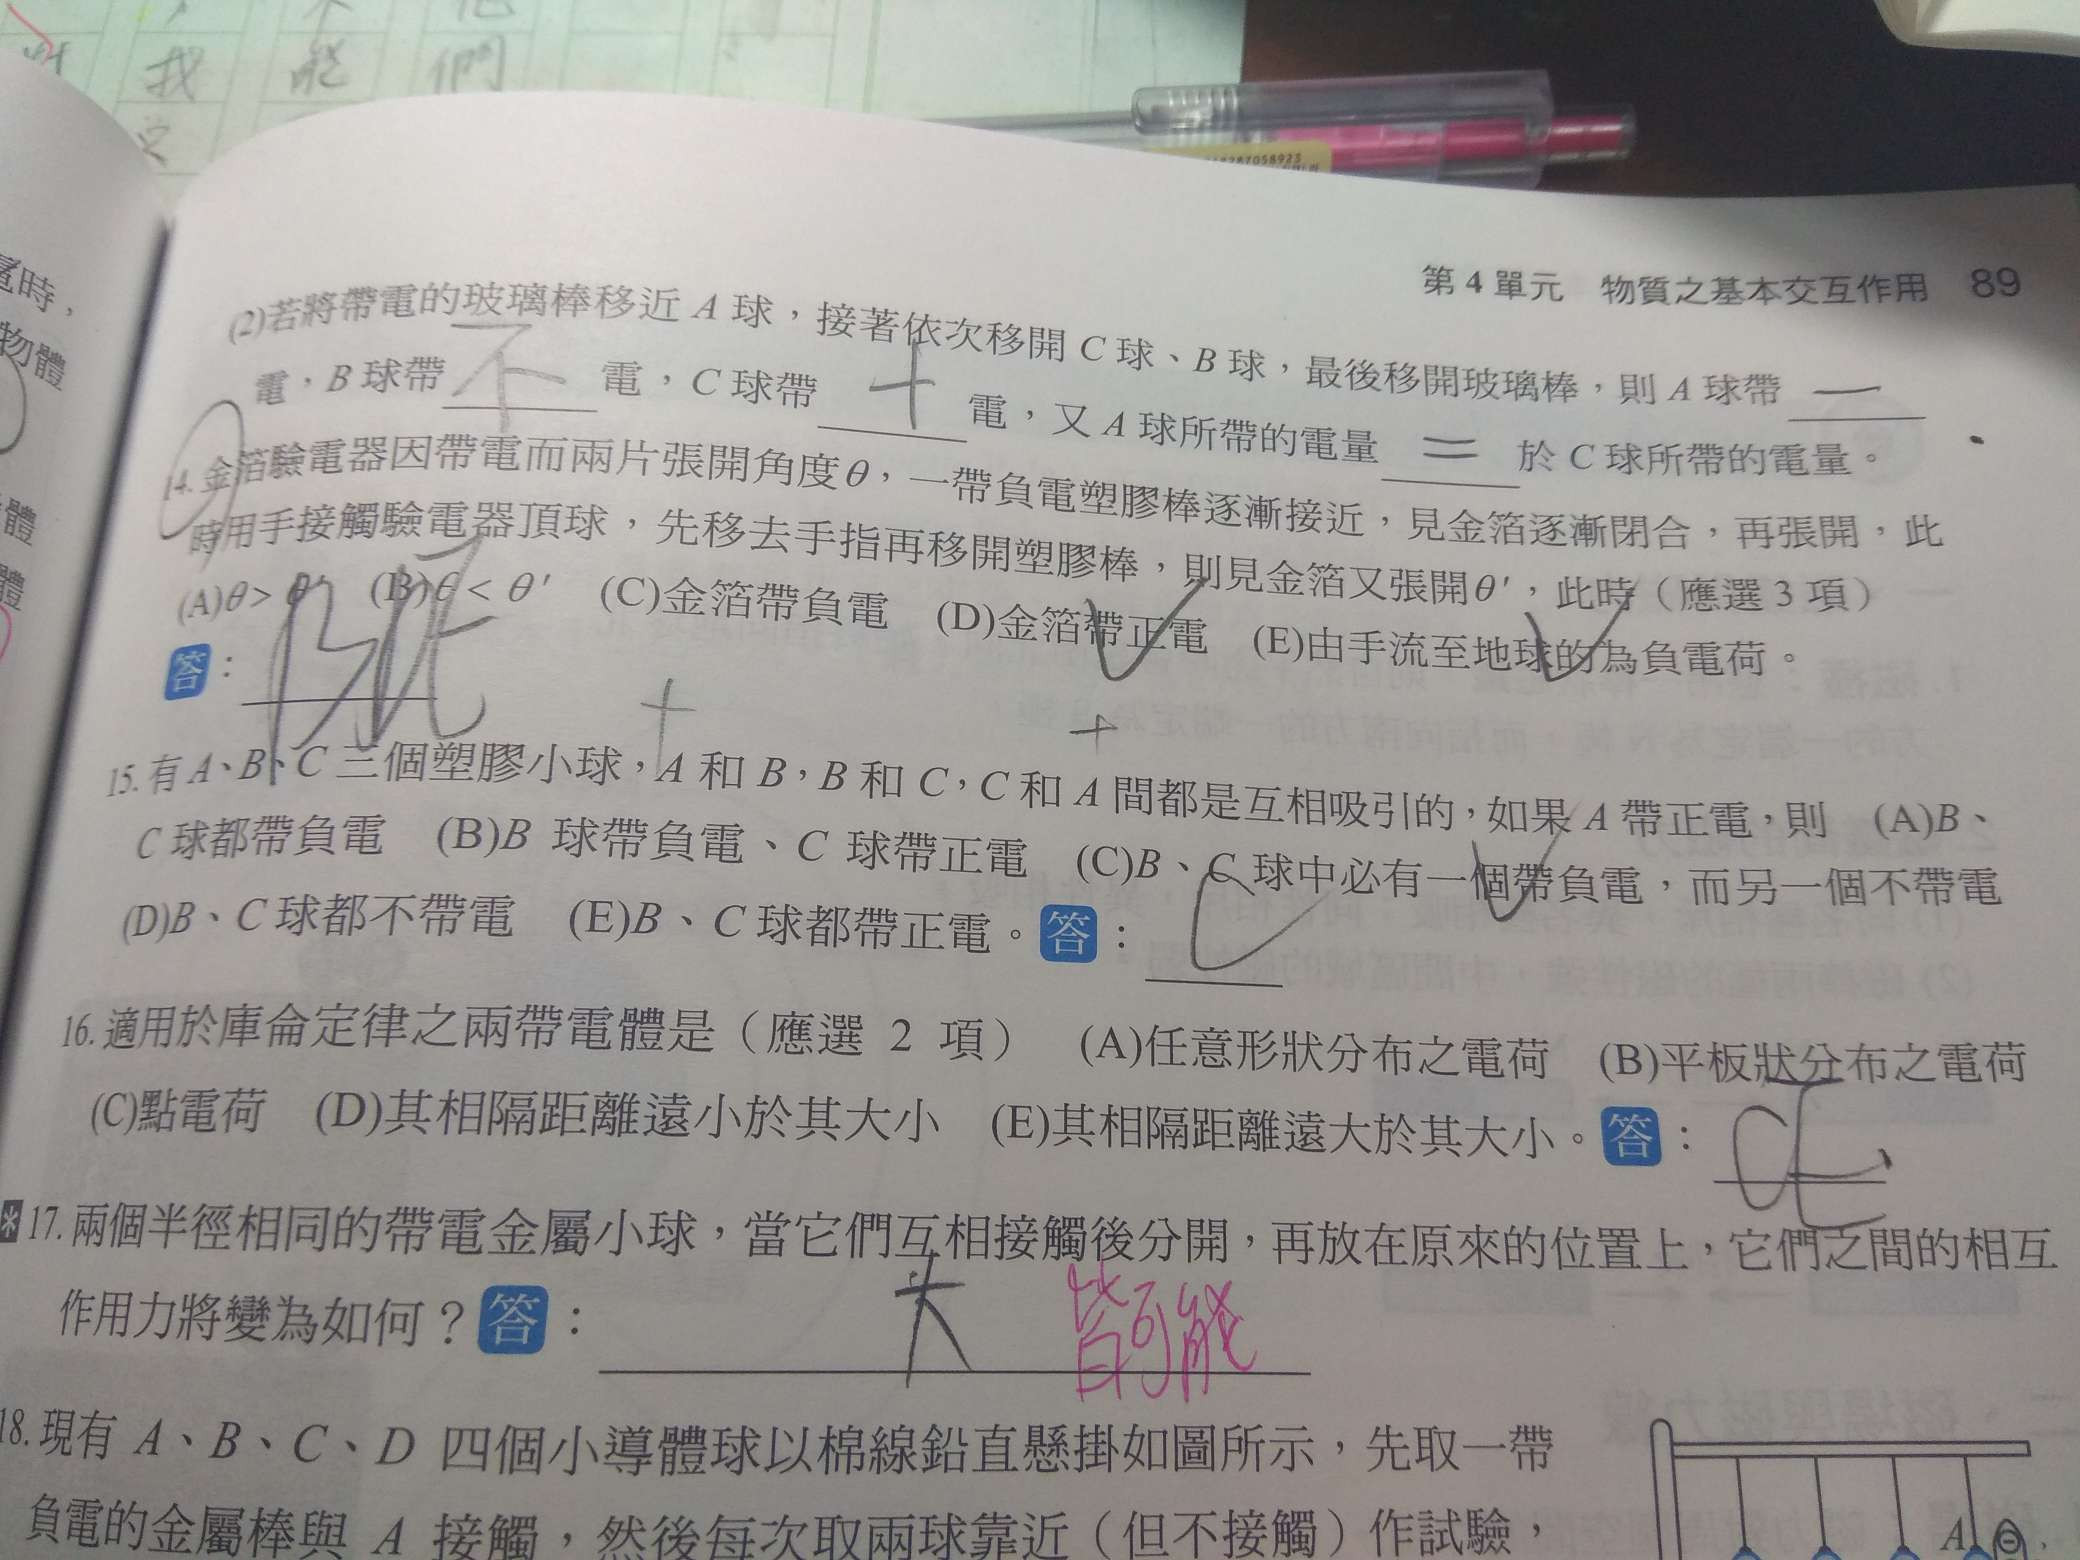 我 能 他
們
28287058923
第 4 單元 物質之基本交互作用 89
(2)若將帶電的玻璃棒移近 A 球，接著依次移開 C 球、B 球，最後移開玻璃棒，則 A 球帶 一
電，B 球帶 不 電，C 球帶 十 電，又 A 球所帶的電量 = 於 C 球所帶的電量。
14. 金箔驗電器因帶電而兩片張開角度θ，一帶負電塑膠棒逐漸接近，見金箔逐漸閉合，再張開，此
時用手接觸驗電器頂球，先移去手指再移開塑膠棒，則見金箔又張開θ'，此時（應選 3 項）
(A)θ > θ' (B)θ < θ' (C)金箔帶負電 (D)金箔帶正電 (E)由手流至地球的為負電荷。
答：
+ +
15. 有 A、B、C 三個塑膠小球，A 和 B，B 和 C，C 和 A 間都是互相吸引的，如果 A 帶正電，則 (A)B、
C 球都帶負電 (B)B 球帶負電、C 球帶正電 (C)B、C 球中必有一個帶負電，而另一個不帶電
(D)B、C 球都不帶電 (E)B、C 球都帶正電。答： C
16. 適用於庫侖定律之兩帶電體是（應選 2 項） (A)任意形狀分布之電荷 (B)平板狀分布之電荷
(C)點電荷 (D)其相隔距離遠小於其大小 (E)其相隔距離遠大於其大小。答： CE
*17. 兩個半徑相同的帶電金屬小球，當它們互相接觸後分開，再放在原來的位置上，它們之間的相互
作用力將變為如何？答： 大 皆可能
18. 現有 A、B、C、D 四個小導體球以棉線鉛直懸掛如圖所示，先取一帶
負電的金屬棒與 A 接觸，然後每次取兩球靠近（但不接觸）作試驗，
A
電時，
物體
體
體